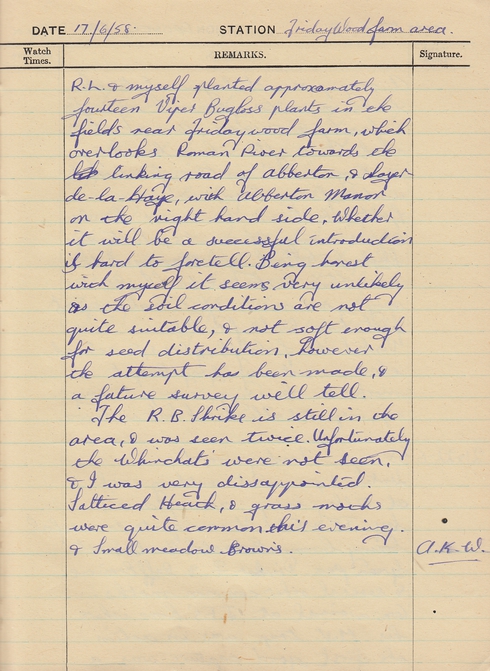 DATE 17/6/58. STATION Fridaywood farm area.
Watch Times. REMARKS. Signature.
R.L. & myself planted approxamately
fourteen Viper Bugloss plants in the
fields near Fridaywood farm, which
overlooks Roman River towards the
linking road of Abberton, & Layer
de-la-Haye, with Abberton Manor
on the right hand side. Whether
it will be a successful introduction
is hard to foretell. Being honest
with myself it seems very unlikely
as the soil conditions are not
quite suitable, & not soft enough
for seed distribution, however
the attempt has been made, &
a future survey we'll tell.
The R.B. Shrike is still in the
area, & was seen twice. Unfortunately
the Whinchats were not seen,
& I was very dissappointed.
Latticed Heath, & grass moths
were quite common this evening.
& Small meadow Browns. A.K.W.